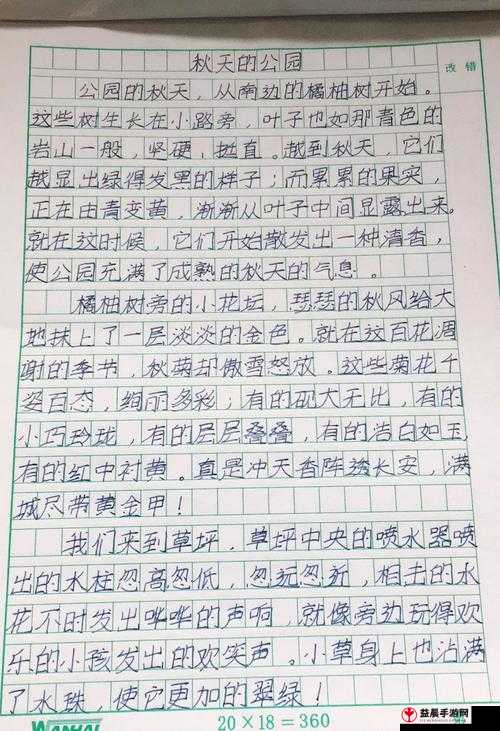 秋天的公园
改错
公园的秋天，从南边的橘柚树开始。
这些树生长在小路旁，叶子也如那青色的
岩山一般，坚硬、挺直。越到秋天，它们
越显出绿得发黑的样子；而累累的果实，
正在由青变黄，渐渐从叶子中间显露出来。
就在这时候，它们开始散发出一种清香，
使公园充满了成熟的秋天的气息。
橘柚树旁的小花坛，瑟瑟的秋风给大
地抹上了一层淡淡的金色。就在这百花凋
谢的季节，秋菊却傲雪怒放。这些菊花千
姿百态，绚丽多彩；有的硕大无比，有的
小巧玲珑，有的层层叠叠，有的洁白如玉
有的红中衬黄。真是冲天香阵透长安，满
城尽带黄金甲！
我们来到草坪，草坪中央的喷水器喷
出的水柱忽高忽低，忽远忽近，相击的水
花不时发出哗哗的声响，就像旁边玩得欢
乐的小孩发出的欢笑声。小草身上也沾满
了水珠，使它更加的翠绿！
WANHAI
20×18=360
益晨手游网